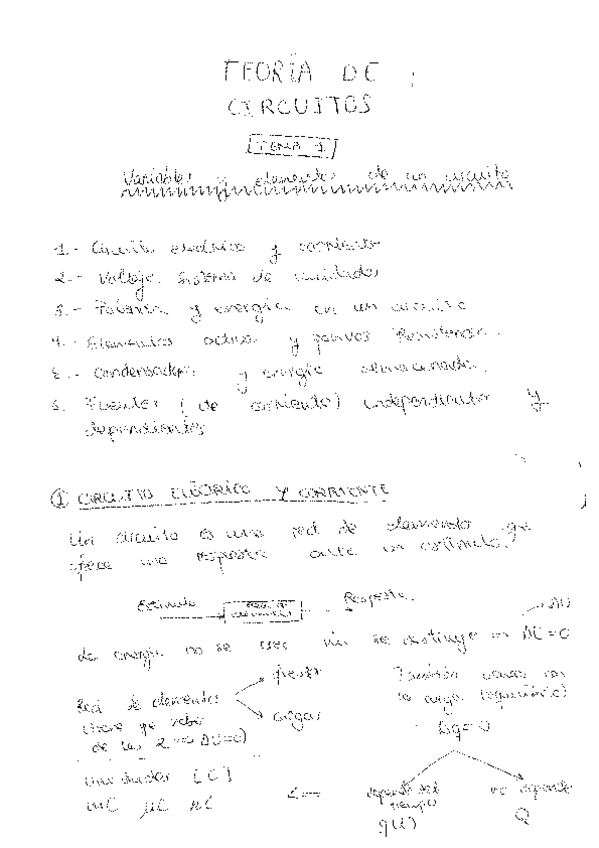 TEORÍA DE
CIRCUITOS
TEMA 1
Variables y elementos de un circuito
1.- Circuito eléctrico y corriente
2.- Voltaje. Sistema de unidades
3.- Potencia y energía en un circuito
4.- Elementos activos y pasivos Resistencia.
5.- Condensador y energía almacenada.
6. Fuentes ( de corriente) independientes y
dependientes
① CIRCUITO ELÉCTRICO Y CORRIENTE
Un circuito es una red de elementos que
ofrece una respuesta ante un estímulo.
Estímulo Red de elementos Respuesta.
ΔU
La energía no se crea ni se destruye =0
Red de elementos
fuentes
cargas
También con
la carga (equilibrio)
Δq=0
de las 2 ΔU=0)
Unidades [C]
mC μC nC
depende del
tiempo
q(t)
no depende
Q